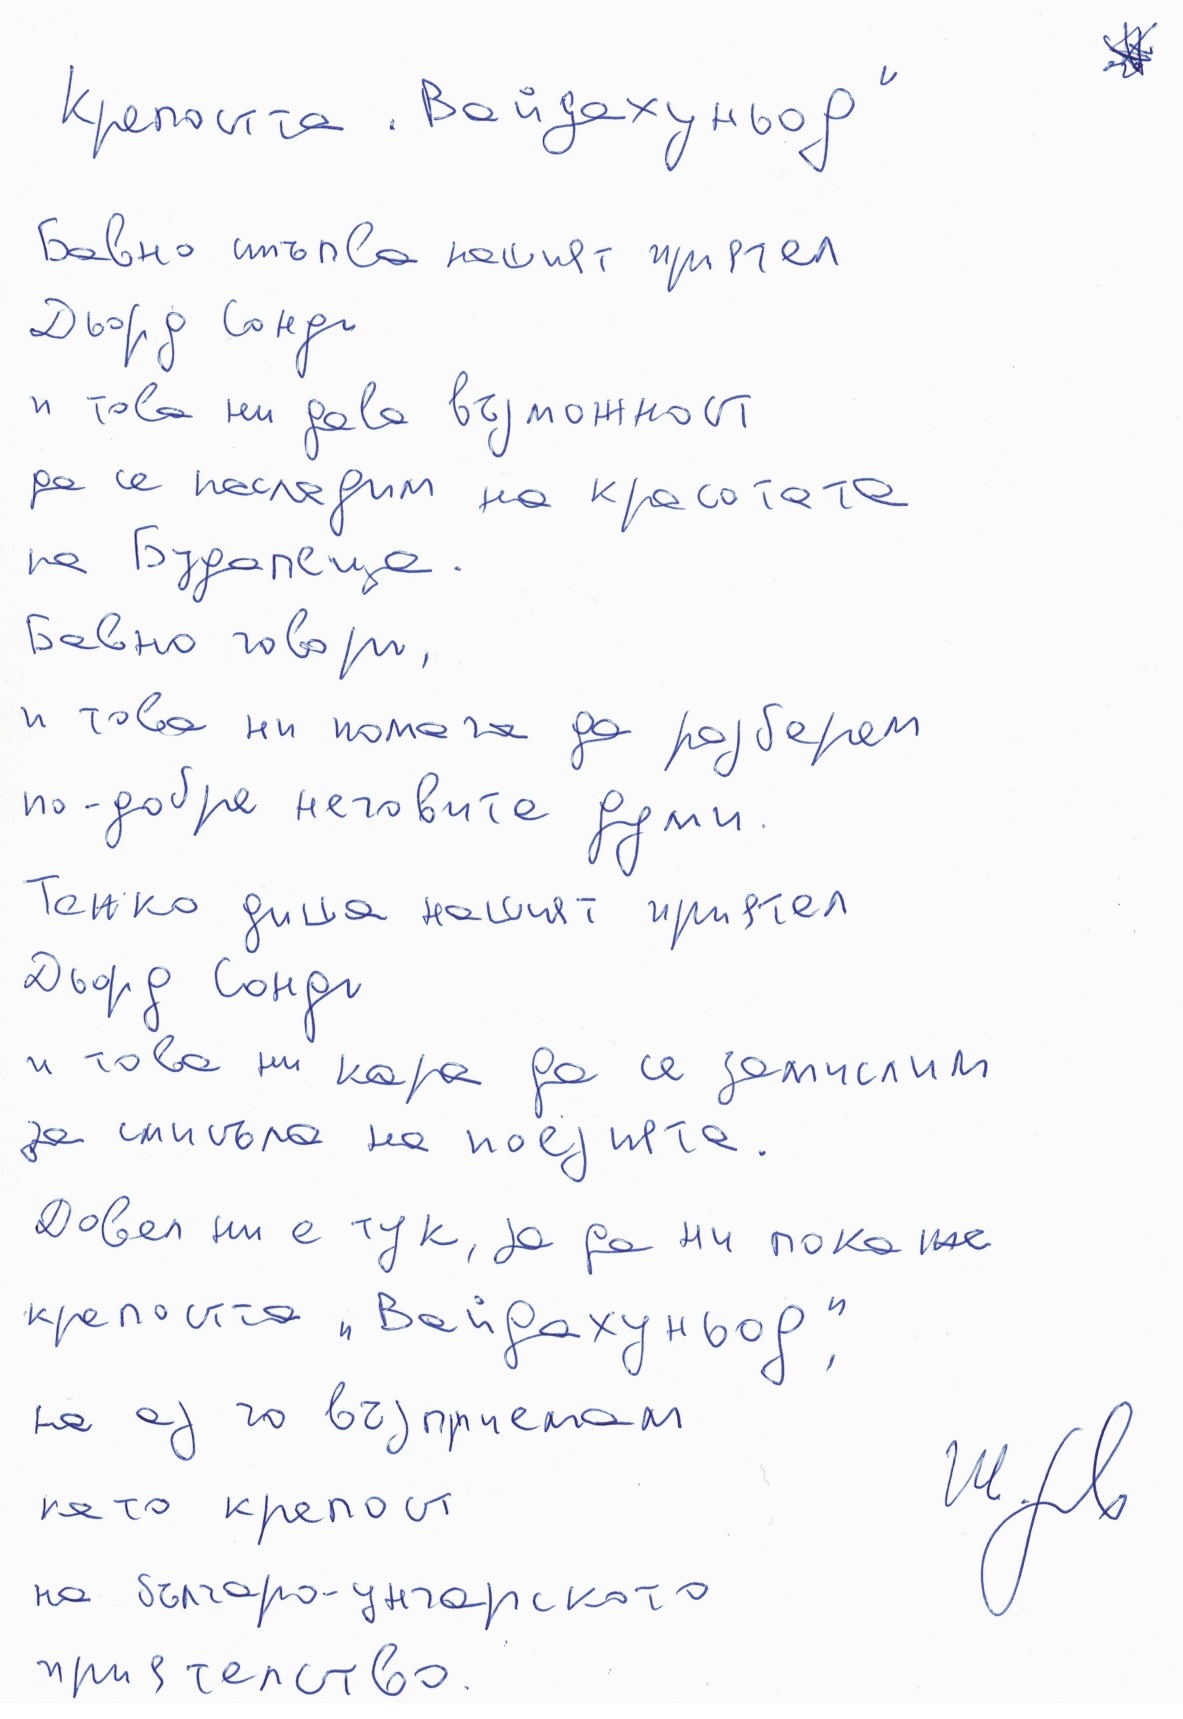 Крепостта „Вайдахуньод"
Бавно стъпва нашият приятел
Дьорд Сонди
и това ни дава възможност
да се насладим на красотата
на Будапеща.
Бавно говори,
и това ни помага да разберем
по-добре неговите думи.
Тежко диша нашият приятел
Дьорд Сонди
и това ни кара да се замислим
за смисъла на поезията.
Довел ни е тук, за да ни покаже
крепостта „Вайдахуньод",
но аз го възприемам
като крепост
на българо-унгарското
приятелство.